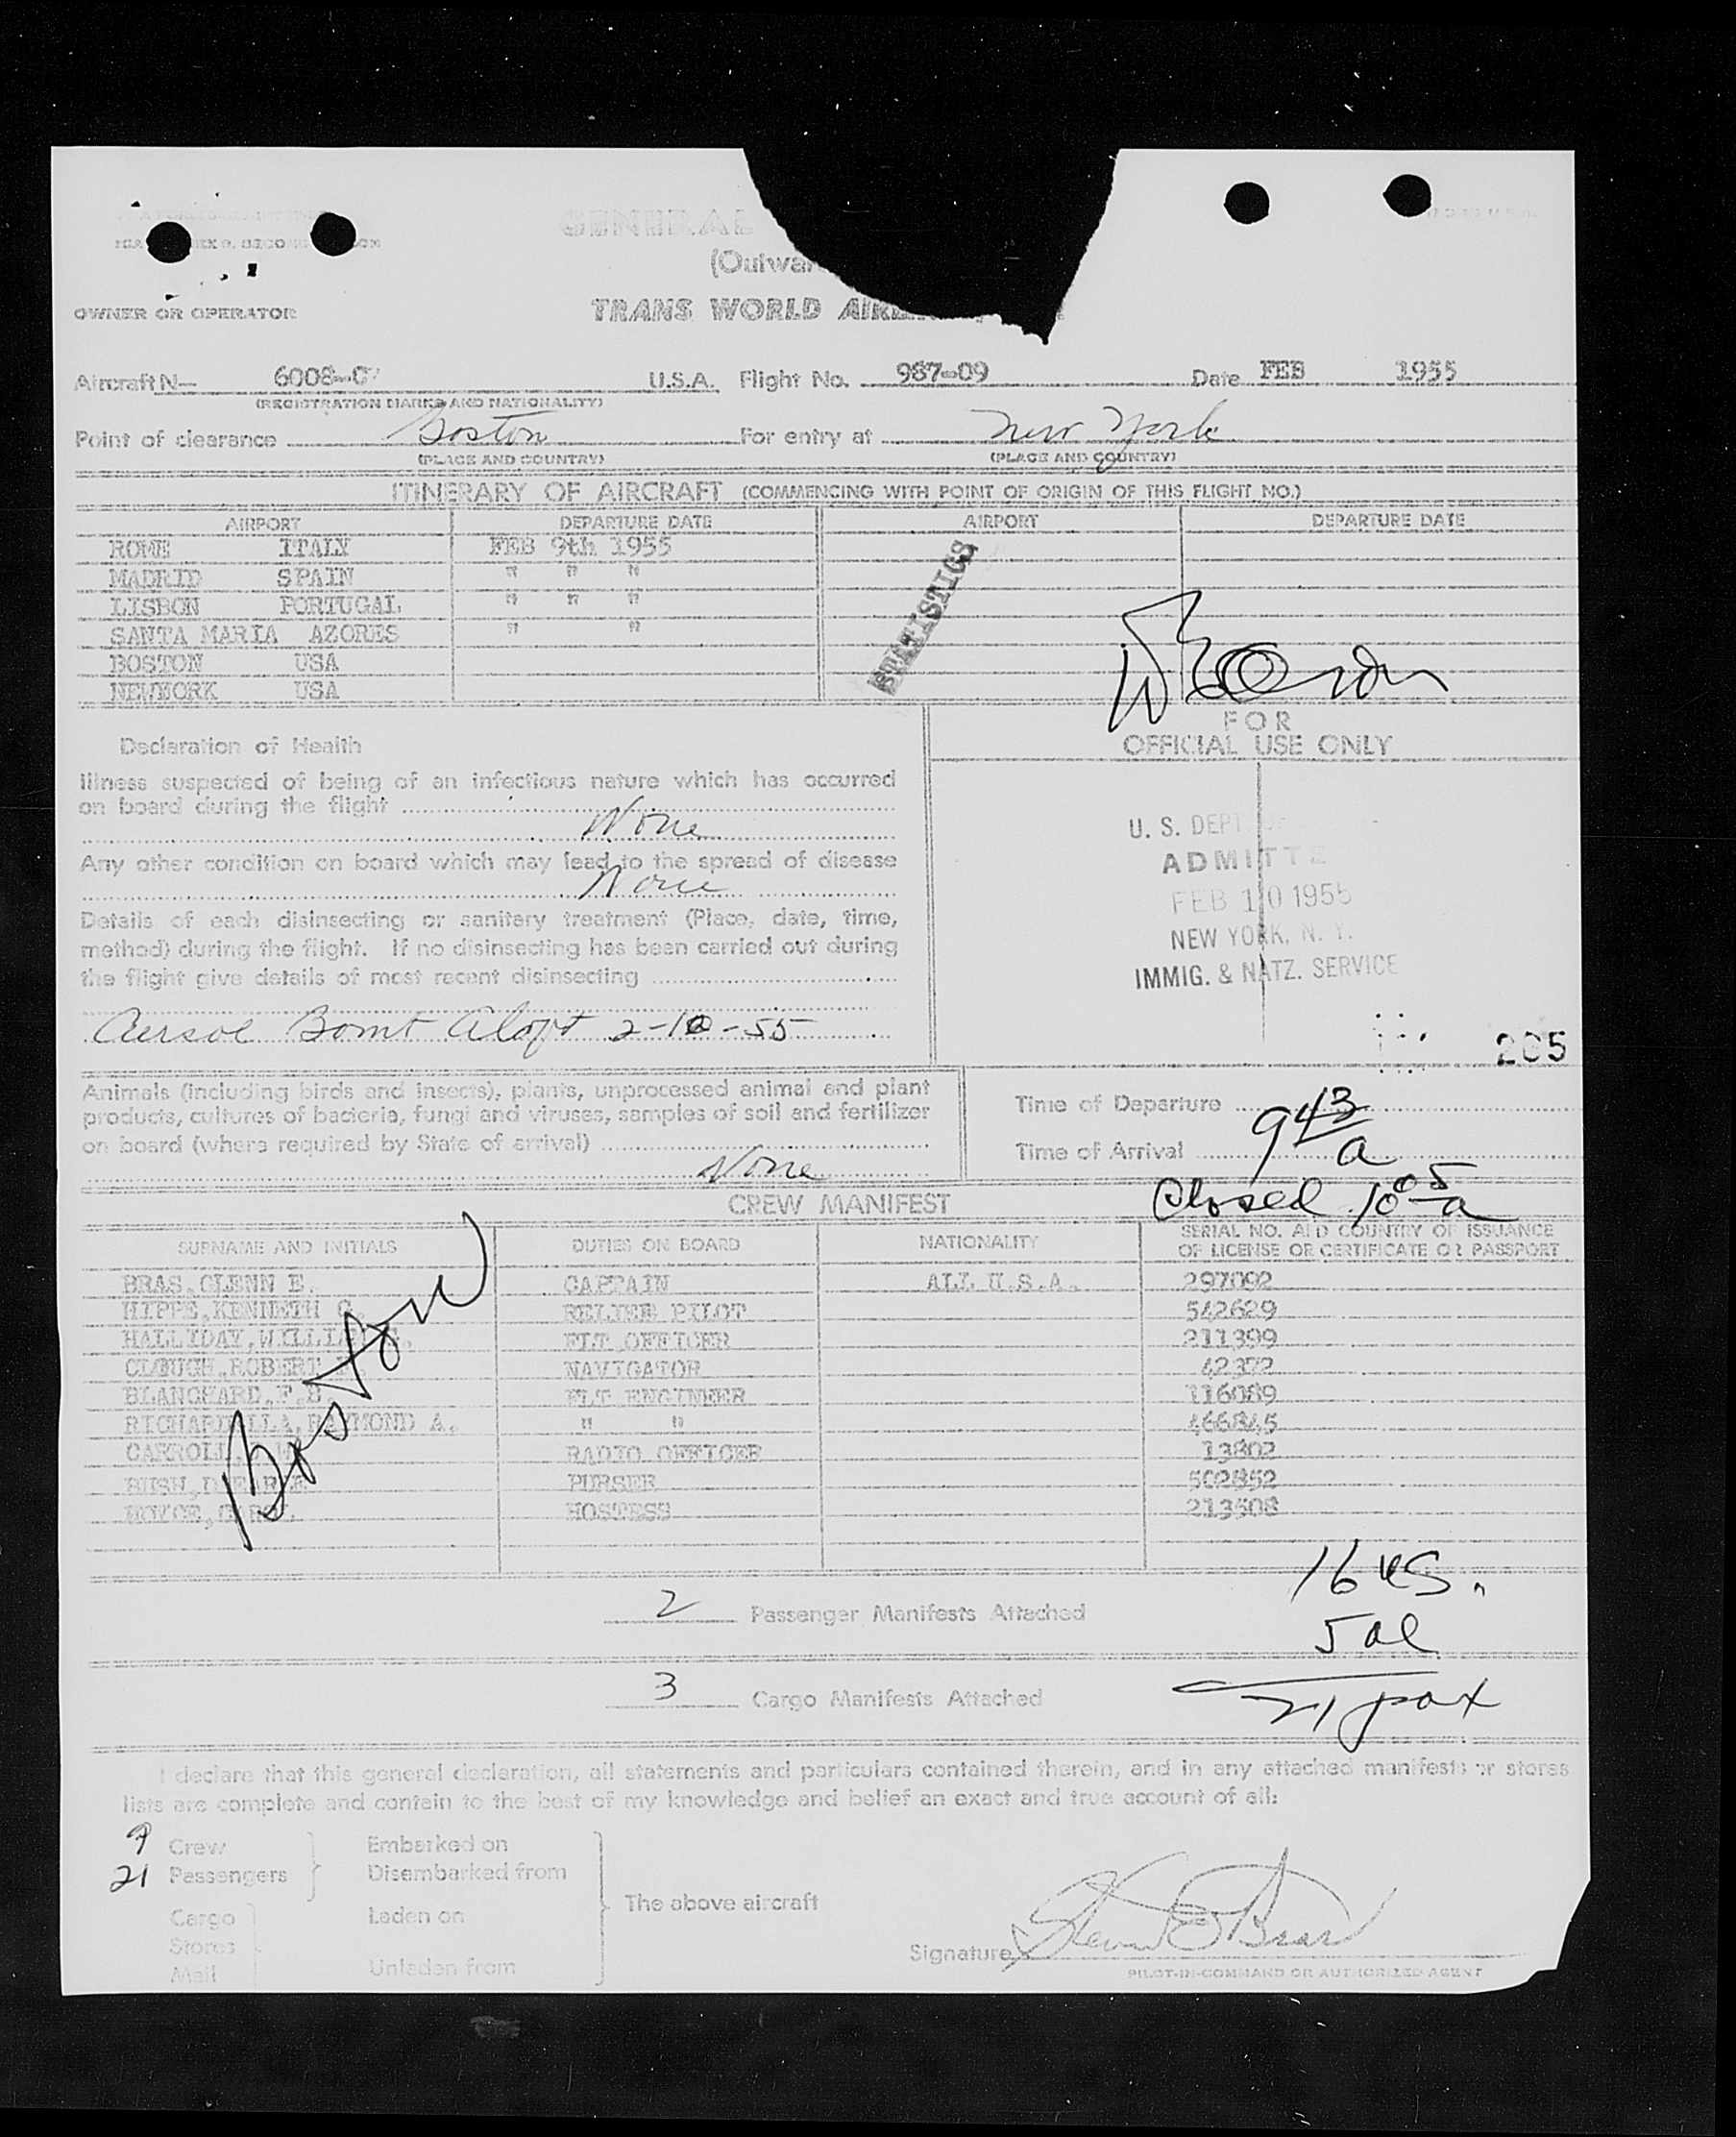 GENERAL
(Outwar
OWNER OR OPERATOR TRANS WORLD
Aircraft N— U.S.A. Flight No. 987-09 Date FEB 1955
(REGISTRATION MARKS AND NATIONALITY)
Point of clearance Boston For entry at New York
(PLACE AND COUNTRY) (PLACE AND COUNTRY)
ITINERARY OF AIRCRAFT (COMMENCING WITH POINT OF ORIGIN OF THIS FLIGHT NO.)
AIRPORT DEPARTURE DATE AIRPORT DEPARTURE DATE
ROME ITALY FEB 9th 1955
MADRID SPAIN " " "
LISBON PORTUGAL " " "
SANTA MARIA AZORES " "
BOSTON USA
NEWYORK USA
STATISTICS
FOR
OFFICIAL USE ONLY
Declaration of Health
Illness suspected of being of an infectious nature which has occurred
on board during the flight
None
Any other condition on board which may lead to the spread of disease
None
Details of each disinsecting or sanitary treatment (Place, date, time,
method) during the flight. If no disinsecting has been carried out during
the flight give details of most recent disinsecting
Aersol Bomb Aloft 2-10-55
U. S. DEPT
ADMITTE
FEB 10 1955
NEW YORK, N. Y.
IMMIG. & NATZ. SERVICE
205
Animals (including birds and insects), plants, unprocessed animal and plant
products, cultures of bacteria, fungi and viruses, samples of soil and fertilizer
on board (where required by State of arrival)
None
Time of Departure
Time of Arrival 9 43 a
Closed 10 05 a
CREW MANIFEST
SURNAME AND INITIALS DUTIES ON BOARD NATIONALITY SERIAL NO. AND COUNTRY OF ISSUANCE
OF LICENSE OR CERTIFICATE OR PASSPORT
BRAS,GLENN E. CAPTAIN ALL U.S.A. 297092
HIPPE,KENNETH RELIEF PILOT 542629
HALLIDAY, FLT OFFICER 211399
CLOUGH,ROBERT NAVIGATOR 42372
BLANCHARD,F.B. FLT ENGINEER 116089
RAYMOND A. " " 466845
CARROLL RADIO OFFICER 13802
BUSH, PURSER 502852
HOSTESS 213508
Boston
16 us.
2 Passenger Manifests Attached
5 al
3 Cargo Manifests Attached
21 pax
I declare that this general declaration, all statements and particulars contained therein, and in any attached manifests or stores
lists are complete and contain to the best of my knowledge and belief an exact and true account of all:
9 Crew Embarked on
21 Passengers Disembarked from
The above aircraft
Cargo Laden on
Stores
Mail Unladen from
Signature
PILOT-IN-COMMAND OR AUTHORIZED AGENT